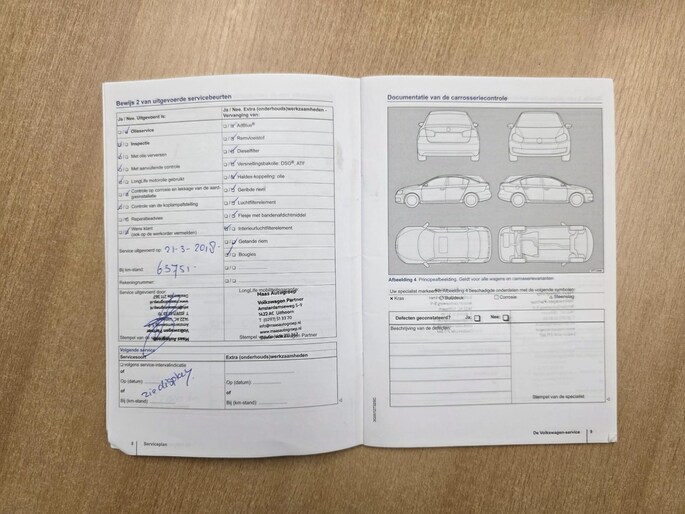 Bewijs 2 van uitgevoerde servicebeurten
Ja / Nee. Uitgevoerd is:
Ja / Nee. Extra (onderhouds)werkzaamheden - Vervanging van:
Olieservice
Inspectie
Met olie verversen
Met aanvullende controle
LongLife motorolie gebruikt
Controle op corrosie en lekkage van de aircoinstallatie
Controle van de koplampafstelling
Reparatieadvies
Wens klant
(ook op de werkorder vermelden)
AdBlue®
Remvloeistof
Dieselfilter
Versnellingsbakolie: DSG®, ATF
Haldex-koppeling: olie
Getörte riem
Luchtfilterelement
Flesje met bandenafdichtmiddel
Interieurluchtfilterelement
Getande riem
Bougies
Service uitgevoerd op: 21-3-2018
Bij km-stand: 63751
Rekeningnummer:
Service uitgevoerd door:
Maas Autogroep
Volkswagen Partner
Amsterdamseweg 5-9
1422 AC Uithoorn
info@maasautogroep.nl
www.maasautogroep.nl
Stempel van de
Volkswagen Partner
Volgende service
Servicesoort
Extra (onderhouds)werkzaamheden
volgens service-intervalindicatie
of
Op (datum):
of
Bij (km-stand):
zie display
Op (datum):
of
Bij (km-stand):
8 Serviceplan
Documentatie van de carrosseriecontrole
Afbeelding 4 Principeafbeelding. Geldt voor alle wagens en carrosserievarianten
Uw specialist markeert in Afbeelding 4 beschadigde onderdelen met de volgende symbolen:
× Kras
○ Buts/deuk
□ Corrosie
△ Steenslag
Defecten geconstateerd? Ja: Nee:
Beschrijving van de defecten:
Stempel van de specialist
De Volkswagen-service 9